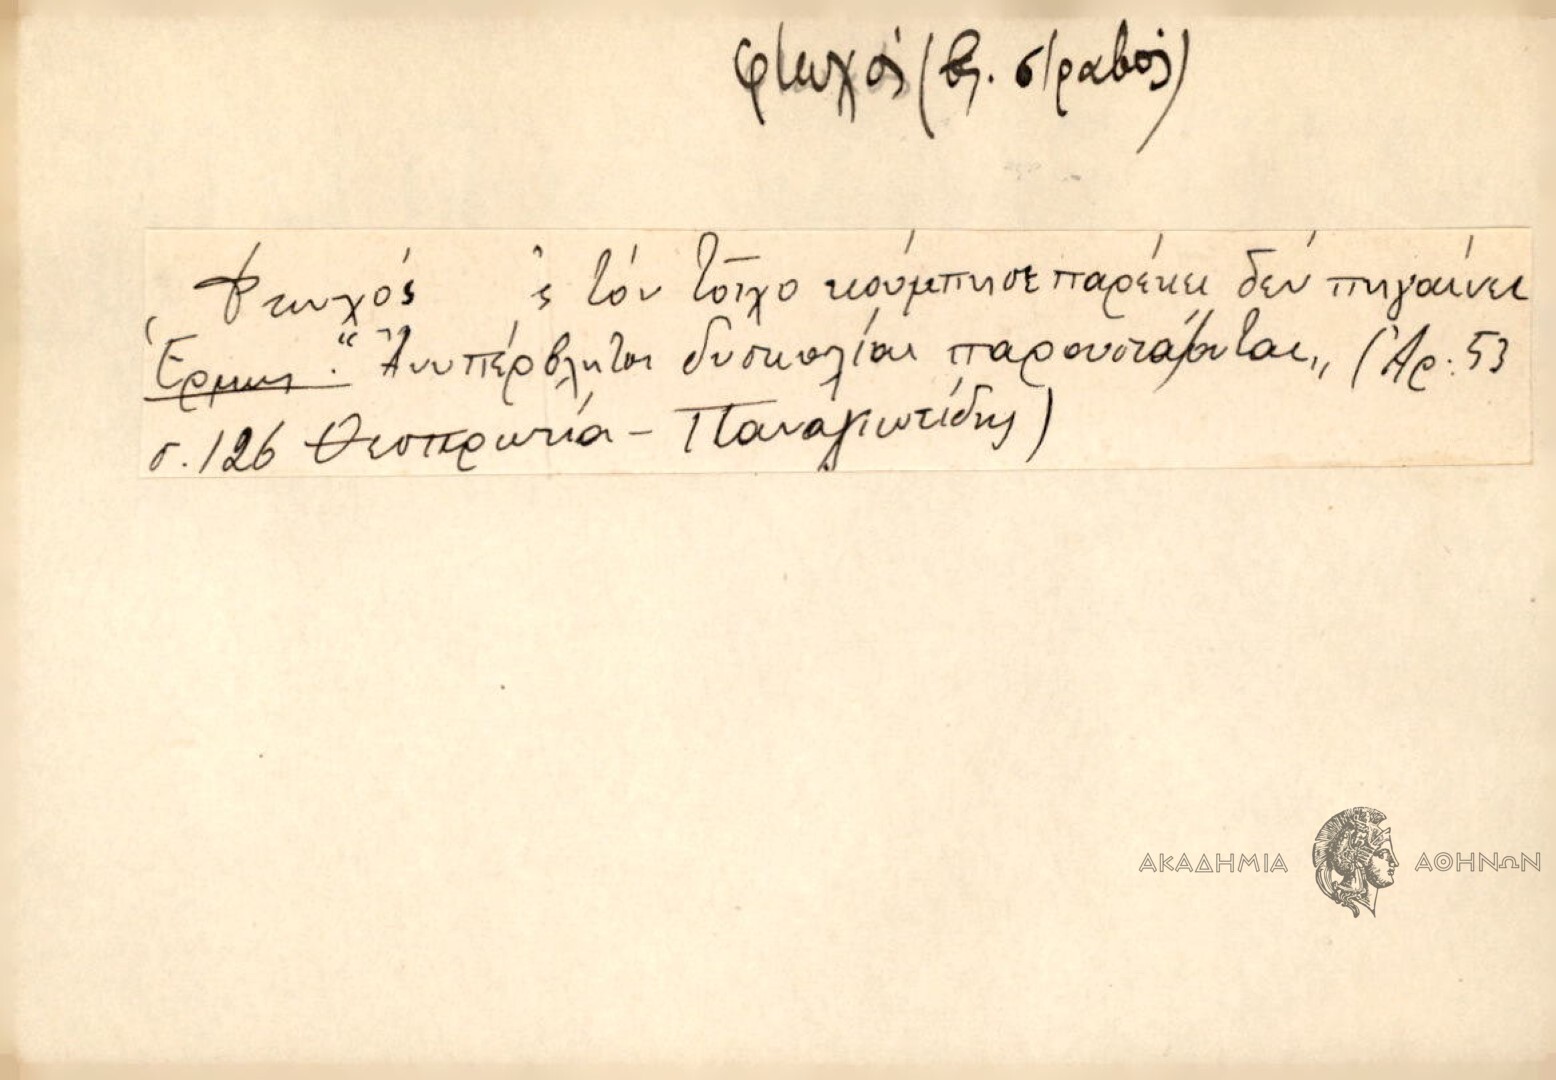 φτωχός (βλ. στραβός)
Φτωχός 'ς τόν τοῖχο κούμπησε παρέκει δέν πηγαίνει
Ἑρμην. "Ἀνυπέρβλητοι δυσκολίαι παρουσιάζονται„ (Ἀρ. 53
σ. 126 Θεσπρωτία – Παναγιωτίδης)
ΑΚΑΔΗΜΙΑ ΑΘΗΝΩΝ